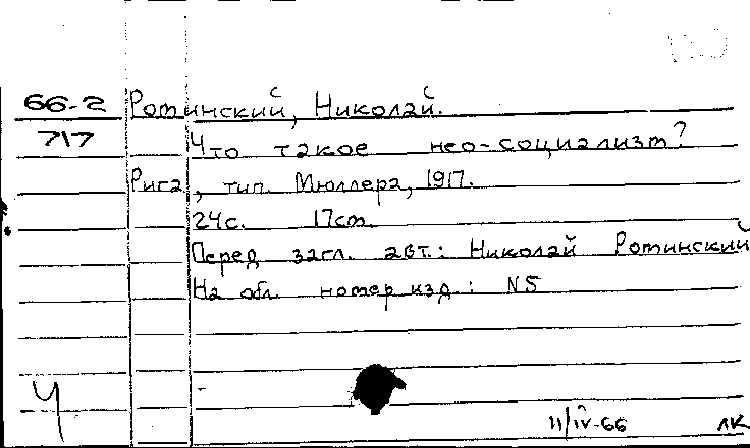 66-2 Ротинский, Николай.
717 Что такое нео-социализм?
Рига, тип. Мюллера, 1917.
24с. 17cm.
Перед загл. авт.: Николай Ротинский
На обл. номер изд.: N5
Ч
11/IV-66 ЛК